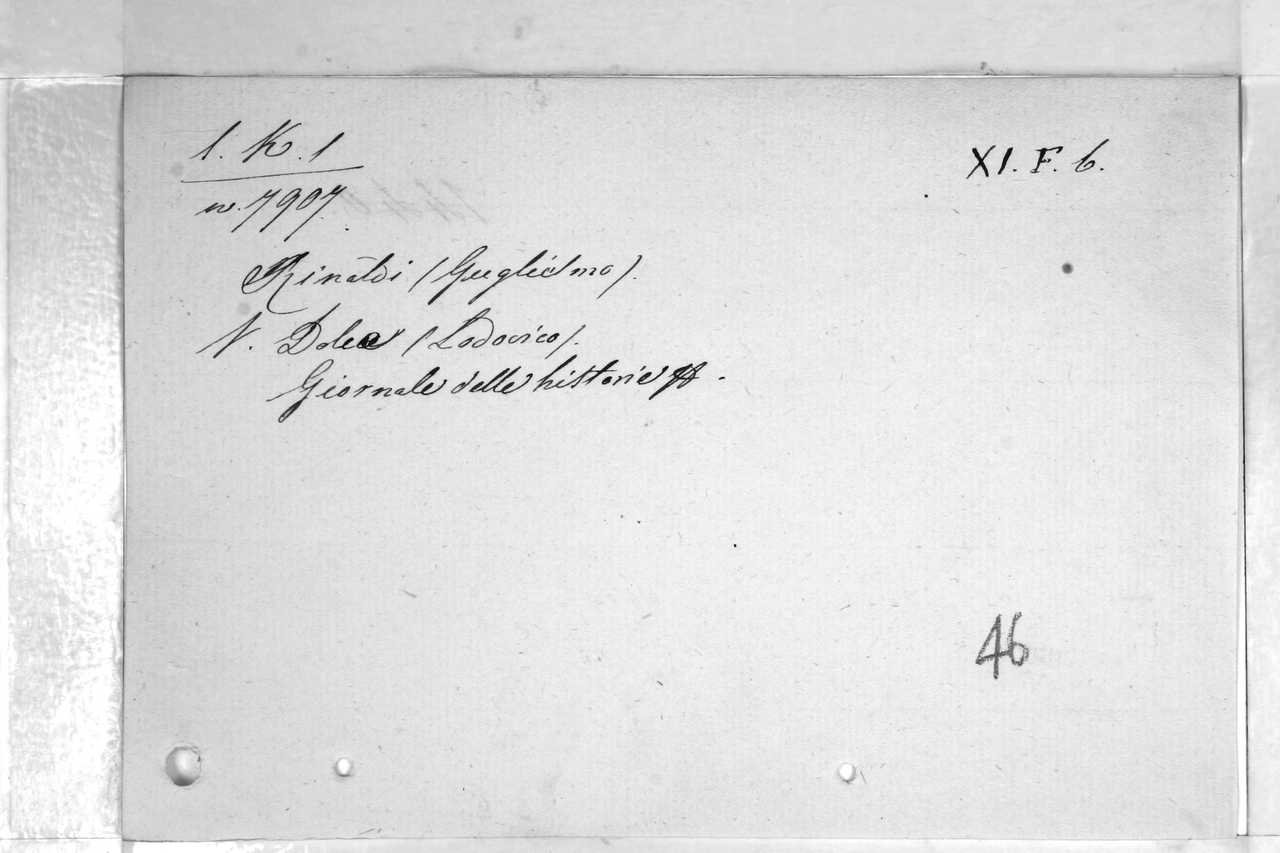 1. K. 1
XI. F. 6.
n. 7907.
Rinaldi (Guglielmo).
V. Dolce (Lodovico).
Giornale delle historie
46